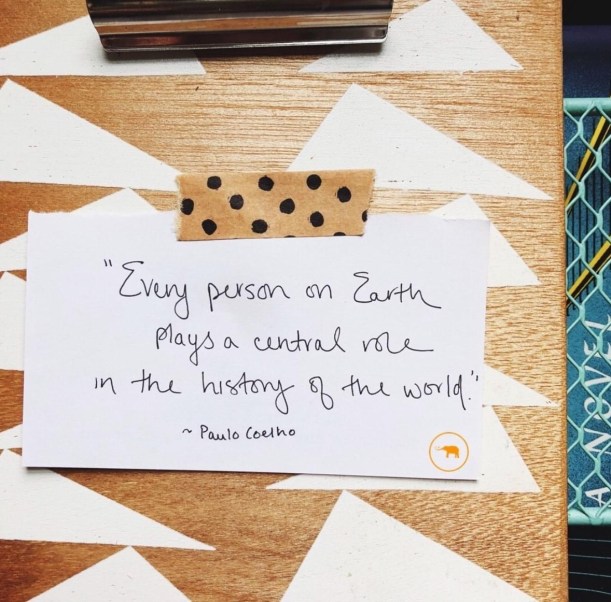 "Every person on Earth
plays a central role
in the history of the world."
~ Paulo Coelho
A NOVEL